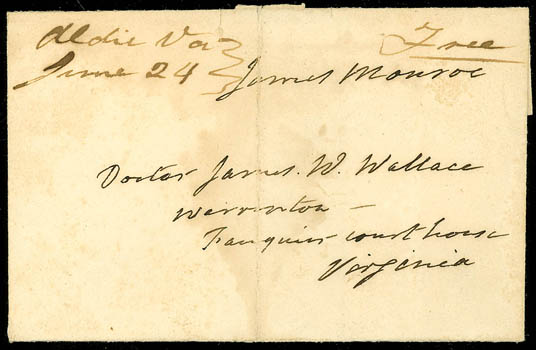 Aldie Va
Free
June 24
James Monroe
Doctor James. W. Wallace
Warrenton –
Fauquier court house
Virginia